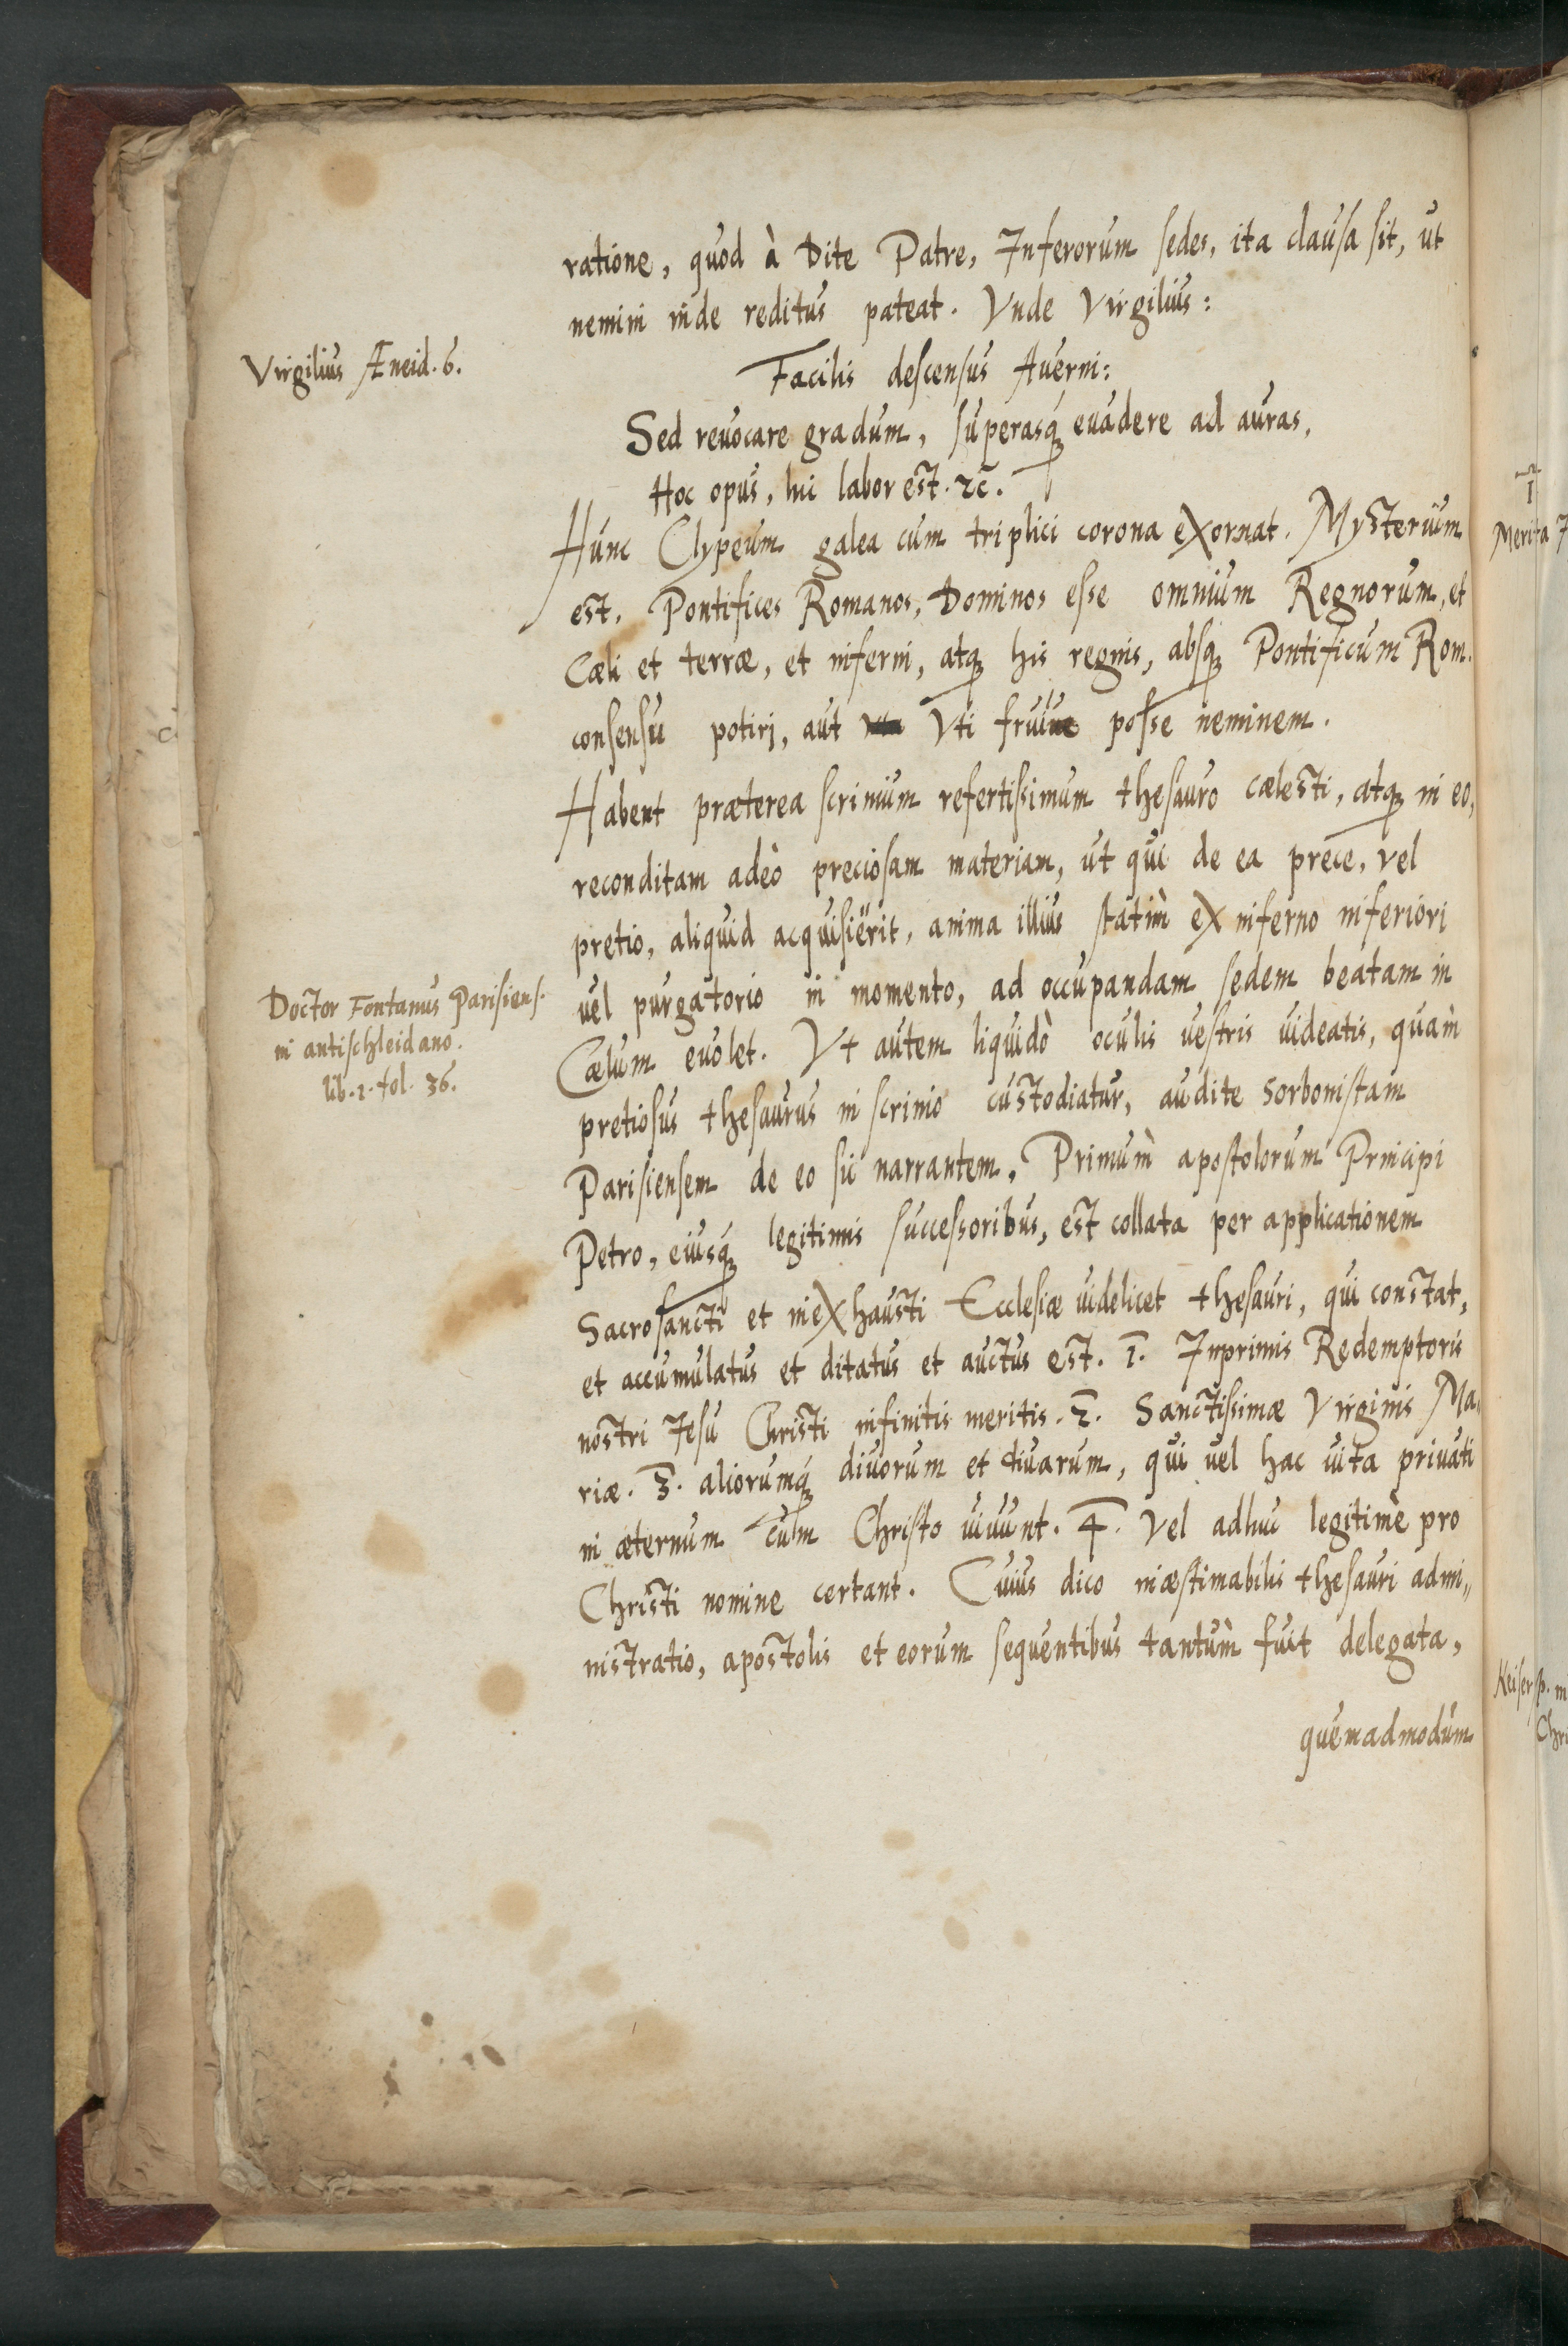 ratione, quod à Dite Patre, Inferorum sedes, ita clausa sit, ut
nemini inde reditus pateat. Vnde Virgilius:
Virgilius Æneid. 6.
Facilis descensus Auerni:
Sed reuocare gradum, superasq́ꝫ euadere ad auras,
Hoc opus, hic labor est. ⁊c̄.
Hunc Clypeum galea cum triplici corona exornat. Mysterium
est. Pontifices Romanos, Dominos esse omnium Regnorum, et
Cæli et terræ, et inferni, atqꝫ his regnis, absqꝫ Pontificum Rom.
consensu potirj, aut Vti fruiue posse neminem.
Habent præterea scrinium refertissimum thesauro cælesti, atqꝫ in eo,
reconditam adeò preciosam materiam, ut qui de ea prece, vel
pretio, aliquid acquisiërit, anima illius statim̀ ex inferno inferiori
Doctor Fontanus Parisiens.
in antischleidano.
lib. 1. fol. 36.
uel purgatorio in momento, ad occupandam sedem beatam in
Cælum euolet. Vt autem liquidò oculis uestris uideatis, quam̀
pretiosus thesaurus in scrinio custodiatur, audite Sorbonistam
Parisiensem de eo sic narrantem. Primum̀ apostolorum Principi
Petro, eiusq́ꝫ legitimis successoribus, est collata per applicationem
Sacrosancti et inexhausti Ecclesiæ uidelicet thesauri, qui constat,
et accumulatus et ditatus et auctus est. 1. Inprimis Redemptoris
nostri Iesu Christi infinitis meritis. 2. Sanctissimæ Virginis Ma,
riæ. 3. aliorumq́ꝫ diuorum et diuarum, qui uel hac uita priuati
in æternum cum Christo uiuunt. 4. Vel adhuc legitimè pro
Christi nomine certant. Cuius dico inæstimabilis thesauri admi,,
nistratio, apostolis et eorum sequentibus tantum̀ fuit delegata,
quemadmodum
1
Merita
Keisersp. in